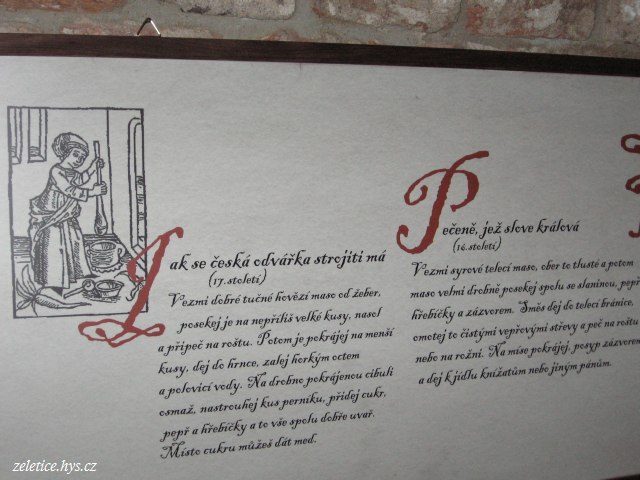 Jak se česká odvářka strojiti má
(17. století)
Vezmi dobré tučné hovězí maso od žeber,
posekej je na nepříliš velké kusy, nasol
a připeč na roštu. Potom je pokrájej na menší
kusy, dej do hrnce, zalej horkým octem
a polovicí vody. Na drobno pokrájenou cibuli
osmaž, nastrouhej kus perníku, přidej cukr,
pepř a hřebíčky a to vše spolu dobře uvař.
Místo cukru můžeš dát med.
Pečeně, jež slove králová
(16. století)
Vezmi syrové telecí maso, ober to tlusté a potom
maso velmi drobně posekej spolu se slaninou, pepř
hřebíčky a zázvorem. Směs dej do telecí bránice,
omotej to čistými vepřovými střevy a peč na roštu
nebo na rožni. Na míse pokrájej, posyp zázvorem
a dej k jídlu knížatům nebo jiným pánům.
zeletice.hys.cz